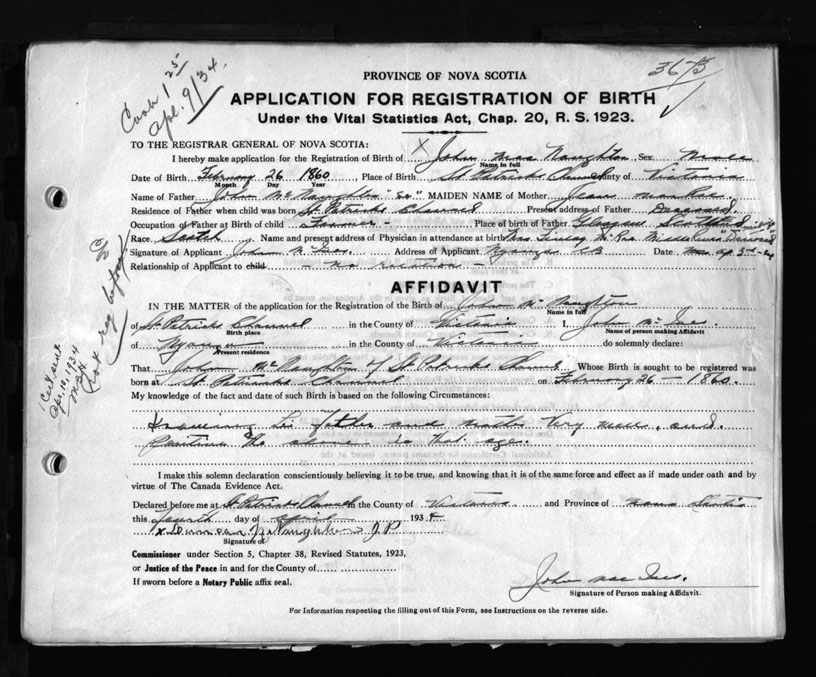 Cash 1 25
Apl. 9/34.
3675
PROVINCE OF NOVA SCOTIA
APPLICATION FOR REGISTRATION OF BIRTH
Under the Vital Statistics Act, Chap. 20, R. S. 1923.
TO THE REGISTRAR GENERAL OF NOVA SCOTIA:
I hereby make application for the Registration of Birth of X John Mac Naughton Sex Male
Name in full
Date of Birth February 26 1860 Place of Birth St Patricks Channel County of Victoria
Month Day Year
Name of Father John Mc Naughton "Sr" MAIDEN NAME of Mother Jean
Residence of Father when child was born St Patricks Channel Present address of Father Deceased
Occupation of Father at Birth of child Farmer - Place of birth of Father Glasgow Scotland
Race Scotch Name and present address of Physician in attendance at birth Mrs Finlay McRae "Deceased"
Signature of Applicant John Address of Applicant Nyanza CB Date
Relationship of Applicant to child - no relation -
AFFIDAVIT
IN THE MATTER of the application for the Registration of the Birth of John Mc Naughton
Name in full
of St Patricks Channel in the County of Victoria I, John
Birth place Name of person making Affidavit
of Nyanza in the County of Victoria do solemnly declare:
Present residence
That John McNaughton of St Patricks Channel Whose Birth is sought to be registered was
born at St Patricks Channel on February 26 - 1860.
My knowledge of the fact and date of such Birth is based on the following Circumstances:
Knowing his father and mother very well and
the above is that age.
I make this solemn declaration conscientiously believing it to be true, and knowing that it is of the same force and effect as if made under oath and by
virtue of The Canada Evidence Act.
Declared before me at St Patricks Channel in the County of Victoria and Province of Nova Scotia
this fourth day of April 1934
x McNaughton J P
Signature of
Commissioner under Section 5, Chapter 38, Revised Statutes, 1923,
or Justice of the Peace in and for the County of
If sworn before a Notary Public affix seal.
John
Signature of Person making Affidavit.
For Information respecting the filling out of this Form, see Instructions on the reverse side.
Cert sent
Apr. 10, 1934